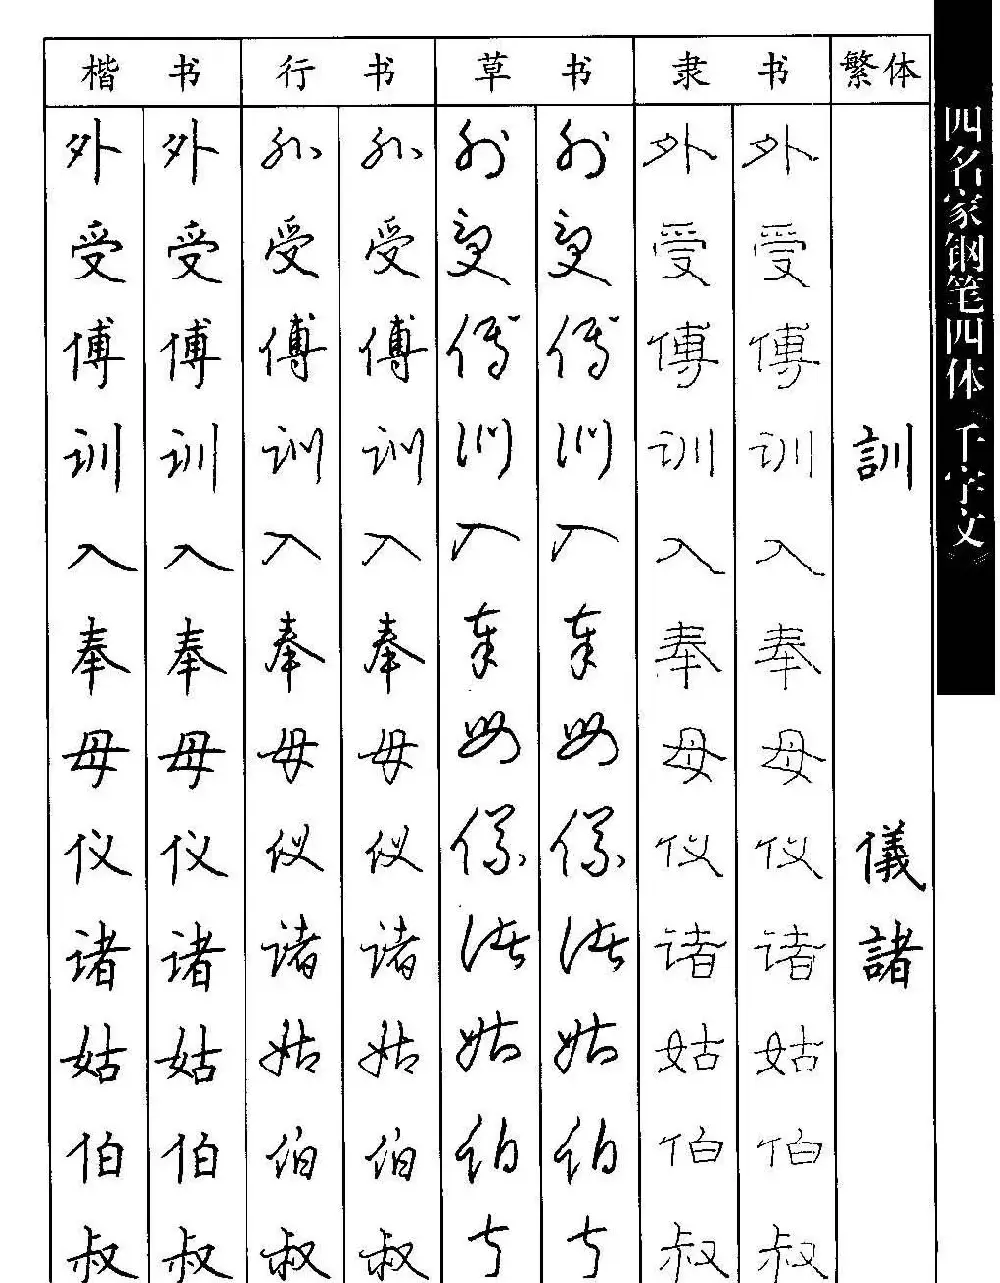 楷书 行书 草书 隶书 繁体
外 外 外 外 外 外 外 外
受 受 受 受 受 受 受 受
傅 傅 傅 傅 傅 傅 傅 傅
训 训 训 训 训 训 训 训 訓
入 入 入 入 入 入 入 入
奉 奉 奉 奉 奉 奉 奉 奉
母 母 母 母 母 母 母 母
仪 仪 仪 仪 仪 仪 仪 仪 儀
诸 诸 诸 诸 诸 诸 诸 诸 諸
姑 姑 姑 姑 姑 姑 姑 姑
伯 伯 伯 伯 伯 伯 伯 伯
叔 叔 叔 叔 叔 叔 叔 叔
四名家钢笔四体《千字文》